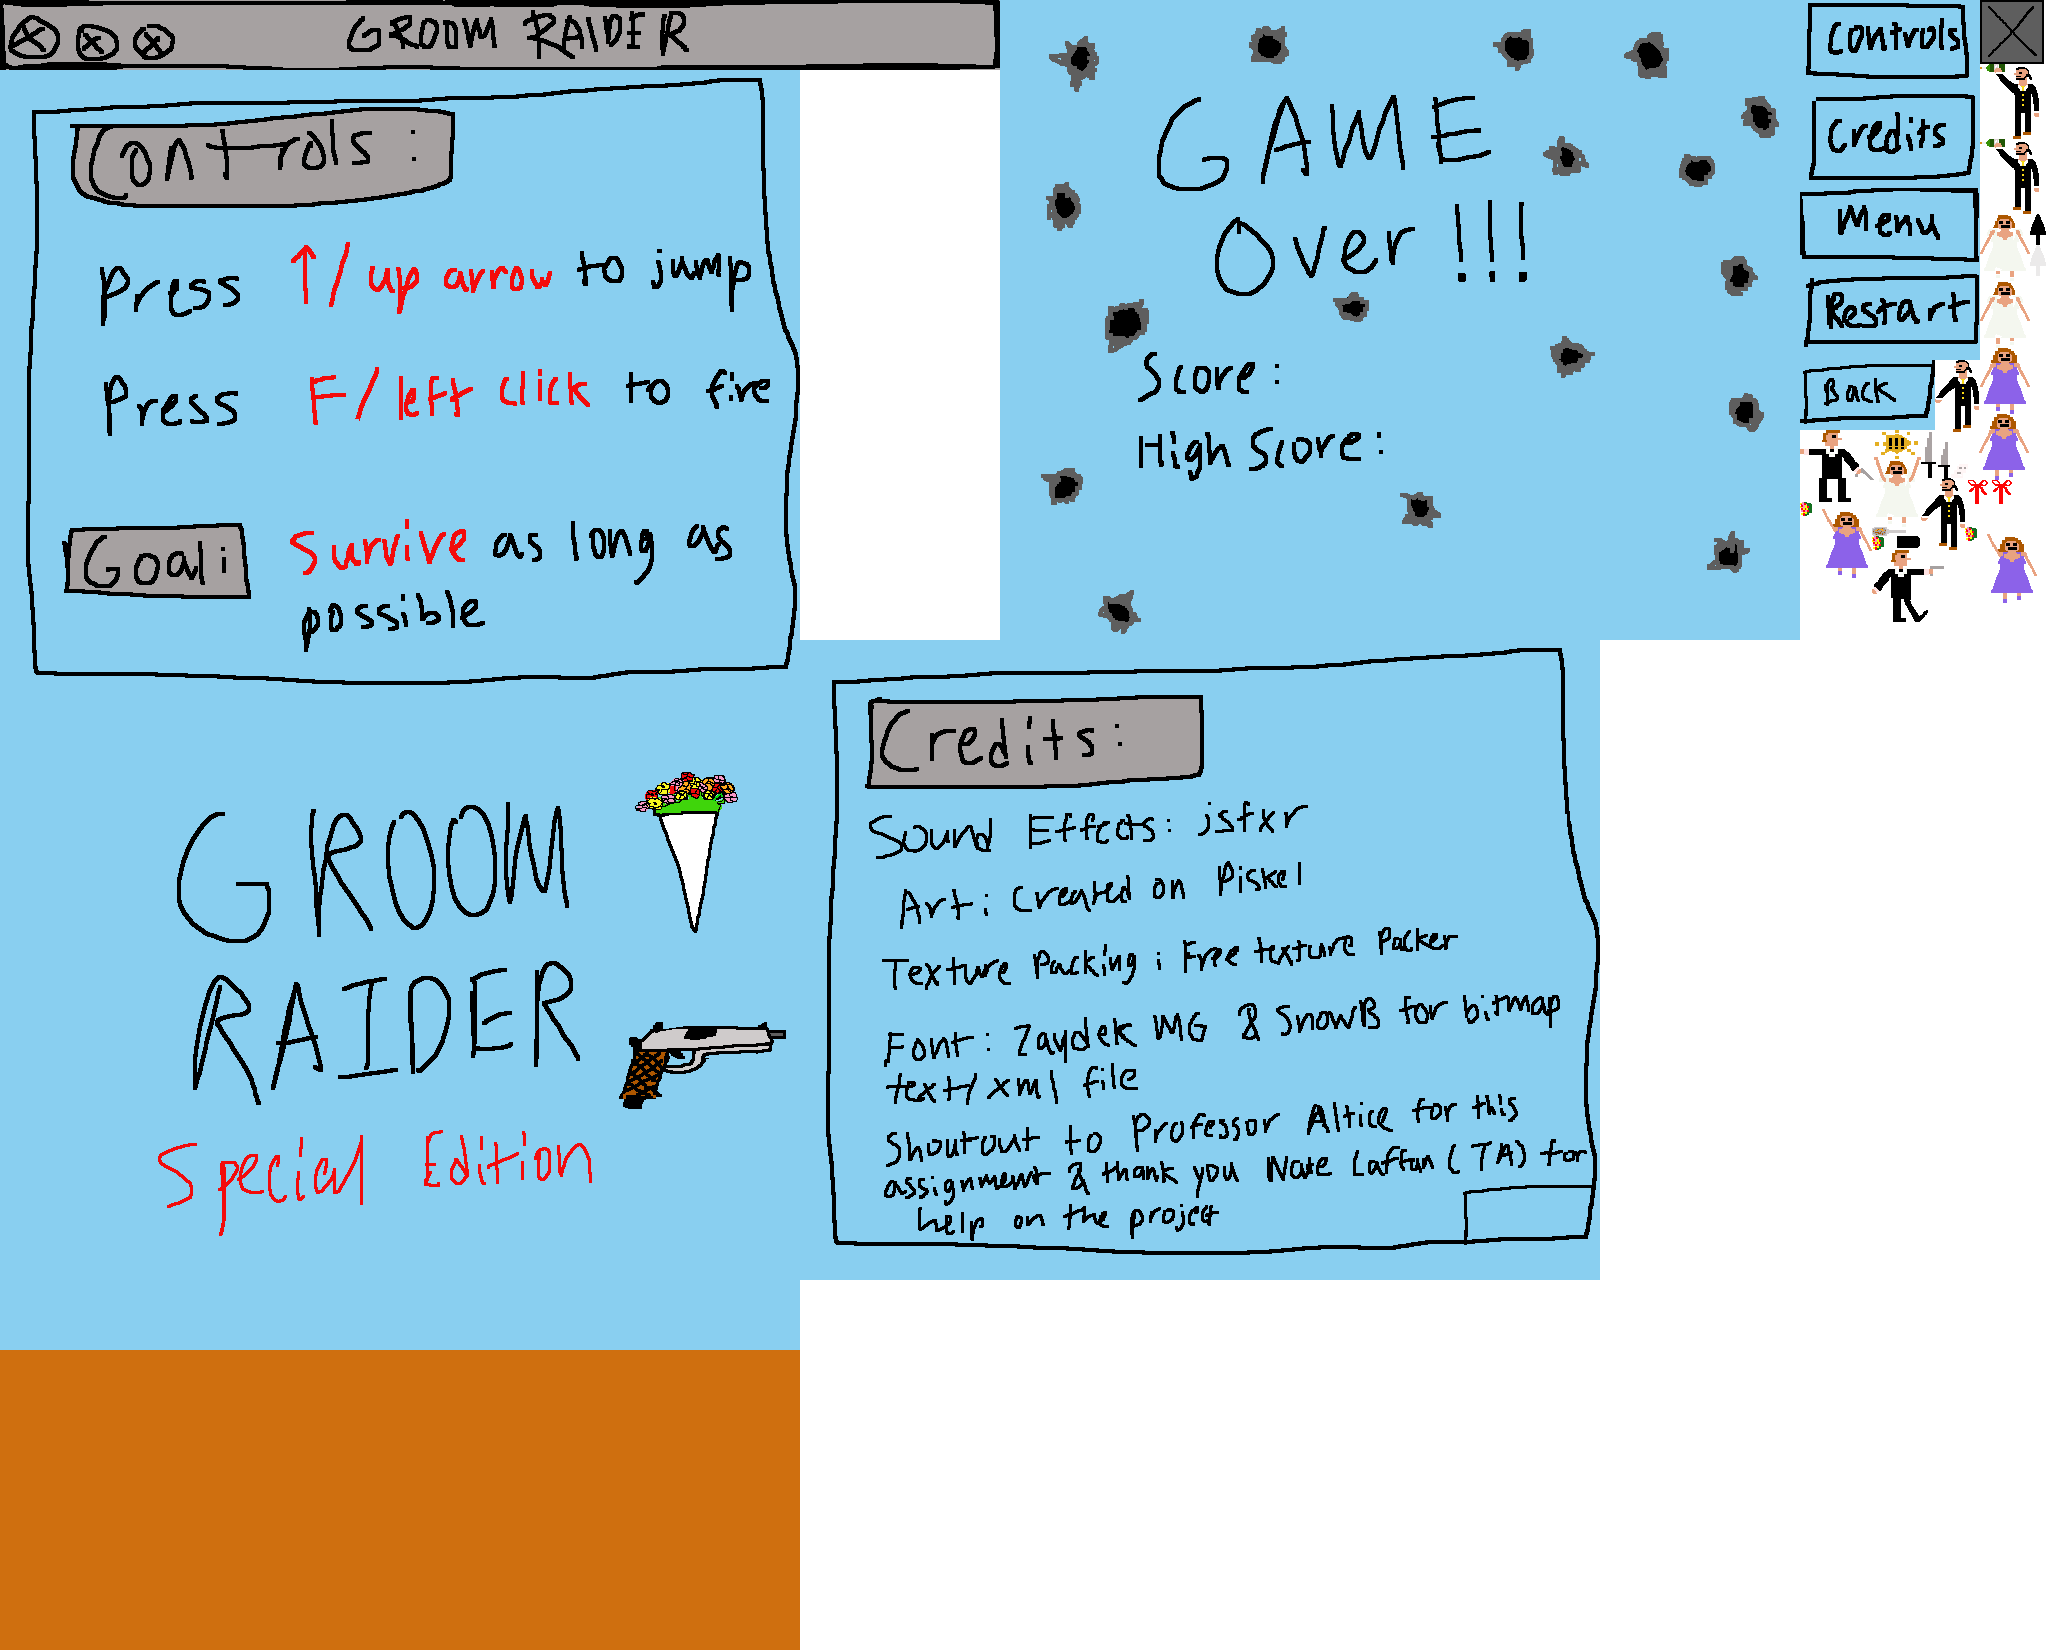 GROOM RAIDER
Controls:
Press ↑/ up arrow to jump
Press F/left click to fire
Goal: Survive as long as
possible
GAME
Over!!!
Score:
High Score:
Controls
Credits
Menu
Restart
Back
!!!
GROOM
RAIDER
Special Edition
Credits:
Sound Effects: jsfxr
Art: Created on Piskel
Texture Packing: Free texture Packer
Font: Zaydek MG & SnowB for bitmap
text/xml file
Shoutout to Professor Altice for this
assignment & thank you Nate Laffan (TA) for
help on the project